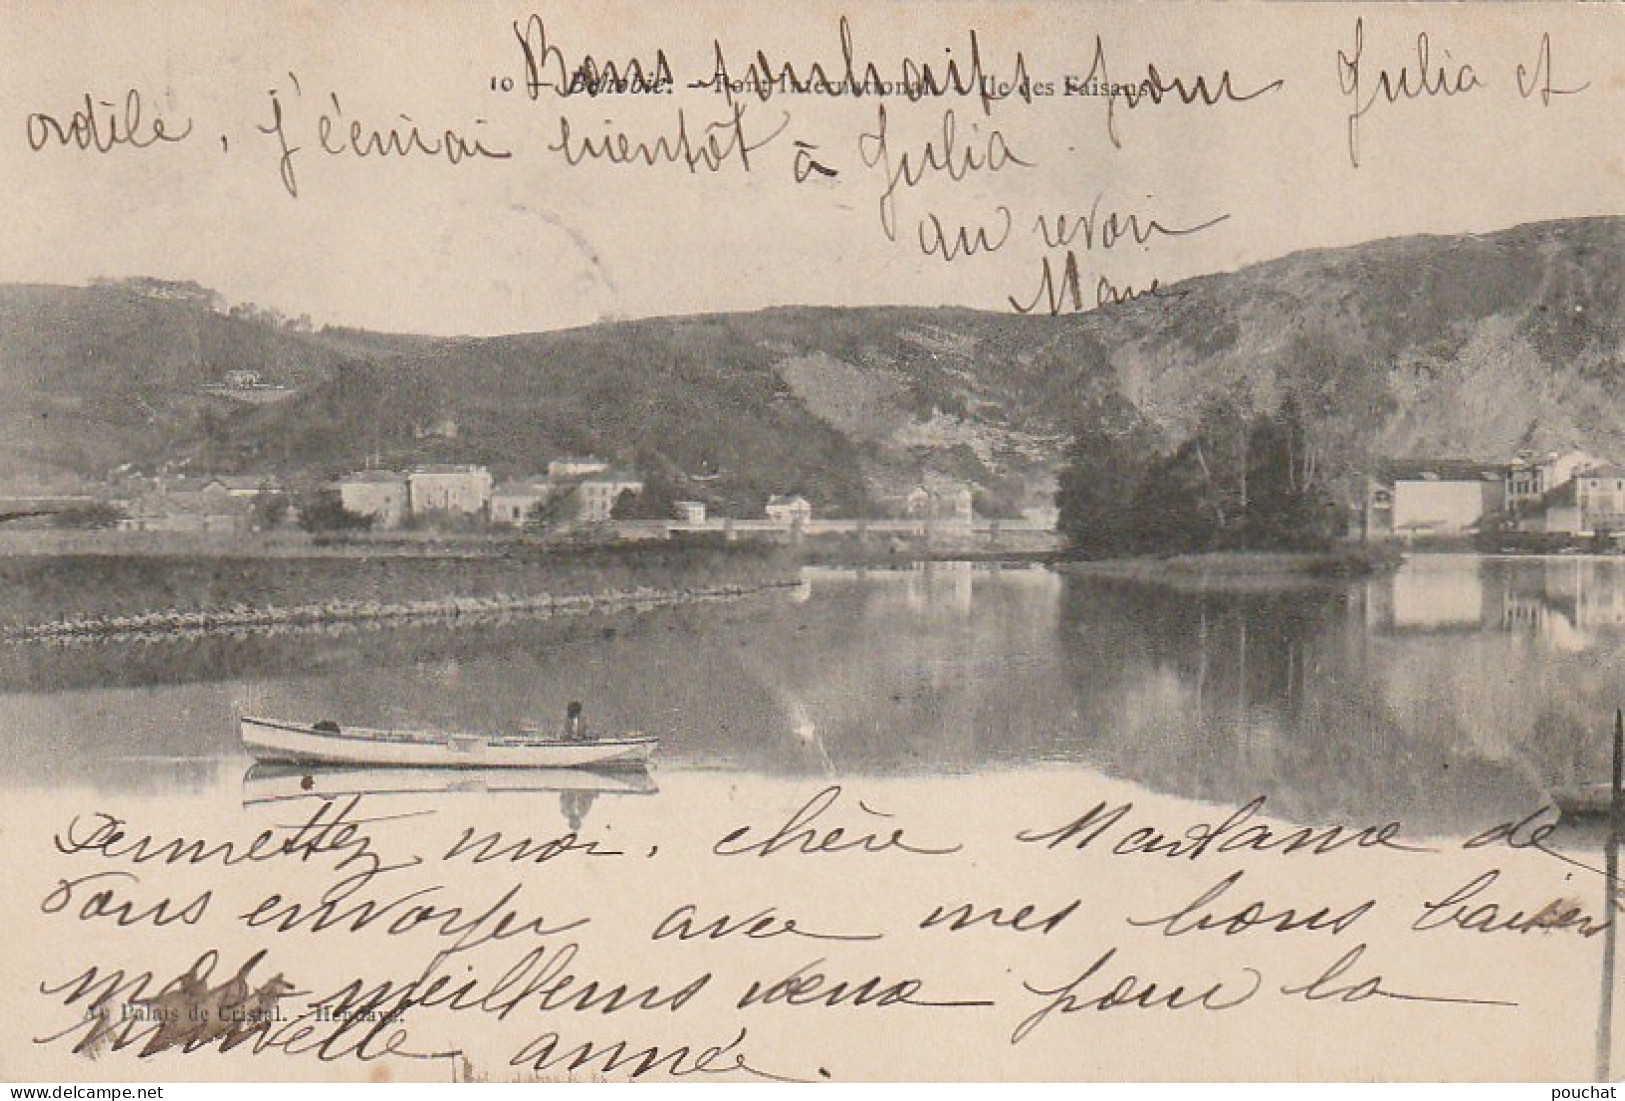 Bons souhaits pour Julia et
10 - Béhobie. - Pont International. Ile des Faisans.
odile, j'écrirai bientôt à Julia.
au revoir
Marie
Permettez moi, chère Madame de
vous envoyer avec mes bons baisers
mes meilleurs vœux pour la
Au Palais de Cristal. - Hendaye.
nouvelle année.
pouchat